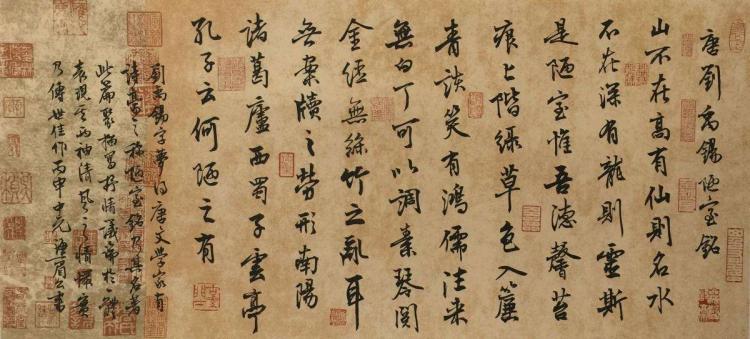 唐劉禹錫陋室銘
山不在高有仙則名水
不在深有龍則靈斯
是陋室惟吾德馨苔
痕上階綠草色入簾
青談笑有鴻儒往來
無白丁可以調素琴閱
金經無絲竹之亂耳
無案牘之勞形南陽
諸葛廬西蜀子雲亭
孔子云何陋之有
劉禹錫字夢得唐文學家有
詩豪之稱陋室銘乃其名著
此篇聚描寫抒情議論於一體
表現其兩袖清風之情操實
乃傳世佳作丙申中元眉公書